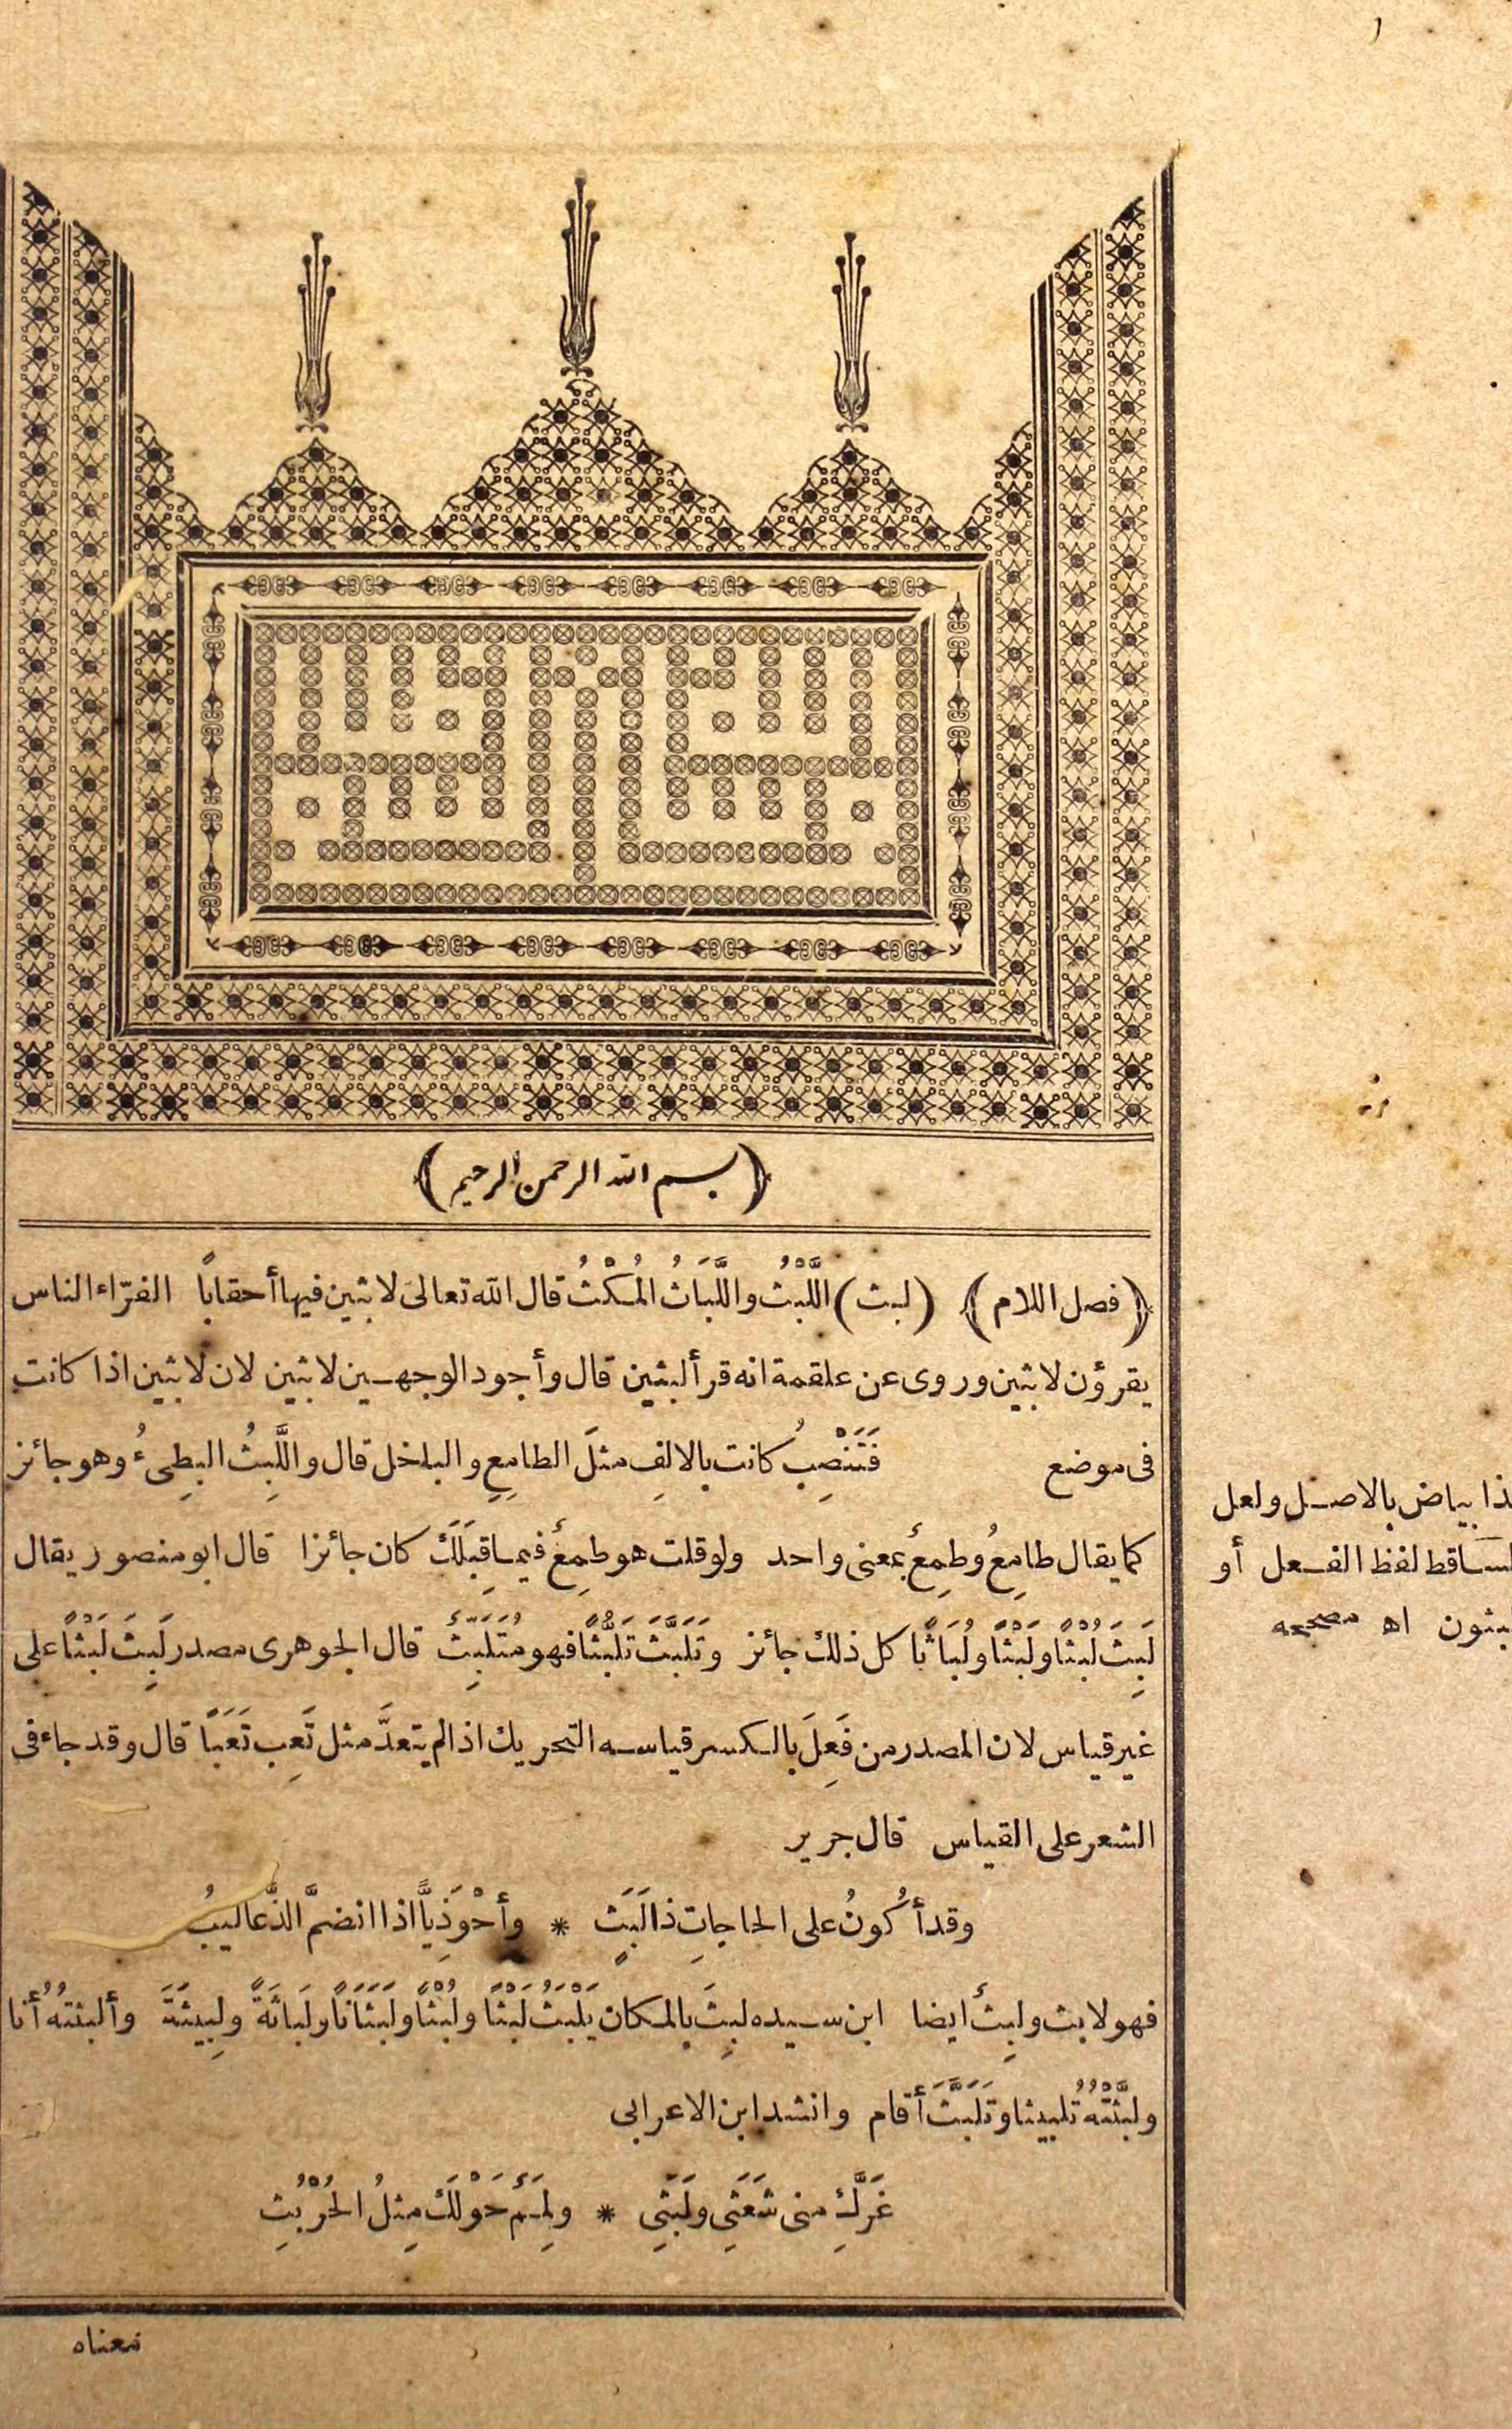 ﴿ بسم الله الرحمن الرحيم ﴾
﴿ فصل اللام ﴾ (لبث) اللَّبْثُ واللَّبَاثُ المُكْثُ قال الله تعالى لابثين فيها أحقاباً الفرّاء الناس
يقرؤن لابثين وروى عن علقمة انه قرأ لبثين قال وأجود الوجهين لابثين لان لابثين اذا كانت
فى موضع فَتَنْصِبُ كانت بالالفِ مثلَ الطامِعِ والباخل قال واللَّبِثُ البطِىءُ وهو جائز
كما يقال طامِعُ وطمِعٌ بمعنى واحد ولو قلت هو طمِعٌ فيما قِبَلَكَ كان جائزا قال ابو منصور يقال
لَبِثَ لُبْثًا ولَبْثًا ولُبَاثًا كل ذلك جائز وتَلَبَّثَ تَلَبُّثًا فهو مُتَلَبِّثٌ قال الجوهرى مصدر لَبِثَ لَبْثًا على
غير قياس لان المصدر من فَعِلَ بالكسر قياسه التحريك اذا لم يتعدَّ مثل تَعِب تَعَبًا قال وقد جاء فى
الشعر على القياس قال جرير
وقد أكُونُ على الحاجاتِ ذا لَبَثٍ * وأحْوَذِيًّا اذا انضمَّ الذَّعاليبُ
فهو لابث ولبِثٌ ايضا ابن سيده لبِثَ بالمكان يَلْبَثُ لَبْثًا ولُبْثًا ولَبَثَانًا ولَباثَةً ولِبِيثَةً وألبثتُه أنا
ولبَّثْتُهُ تلبيثا وتَلَبَّثَ أقام وانشد ابن الاعرابى
غَرَّكِ منى شَعَثِى ولَبَثِى * ولِمَمٌ حَوْلَكِ مِثلُ الحُرْبُثِ
معناه
ذا بياض بالاصل ولعل
لساقط لفظ الفعل أو
بثون اه مصححه